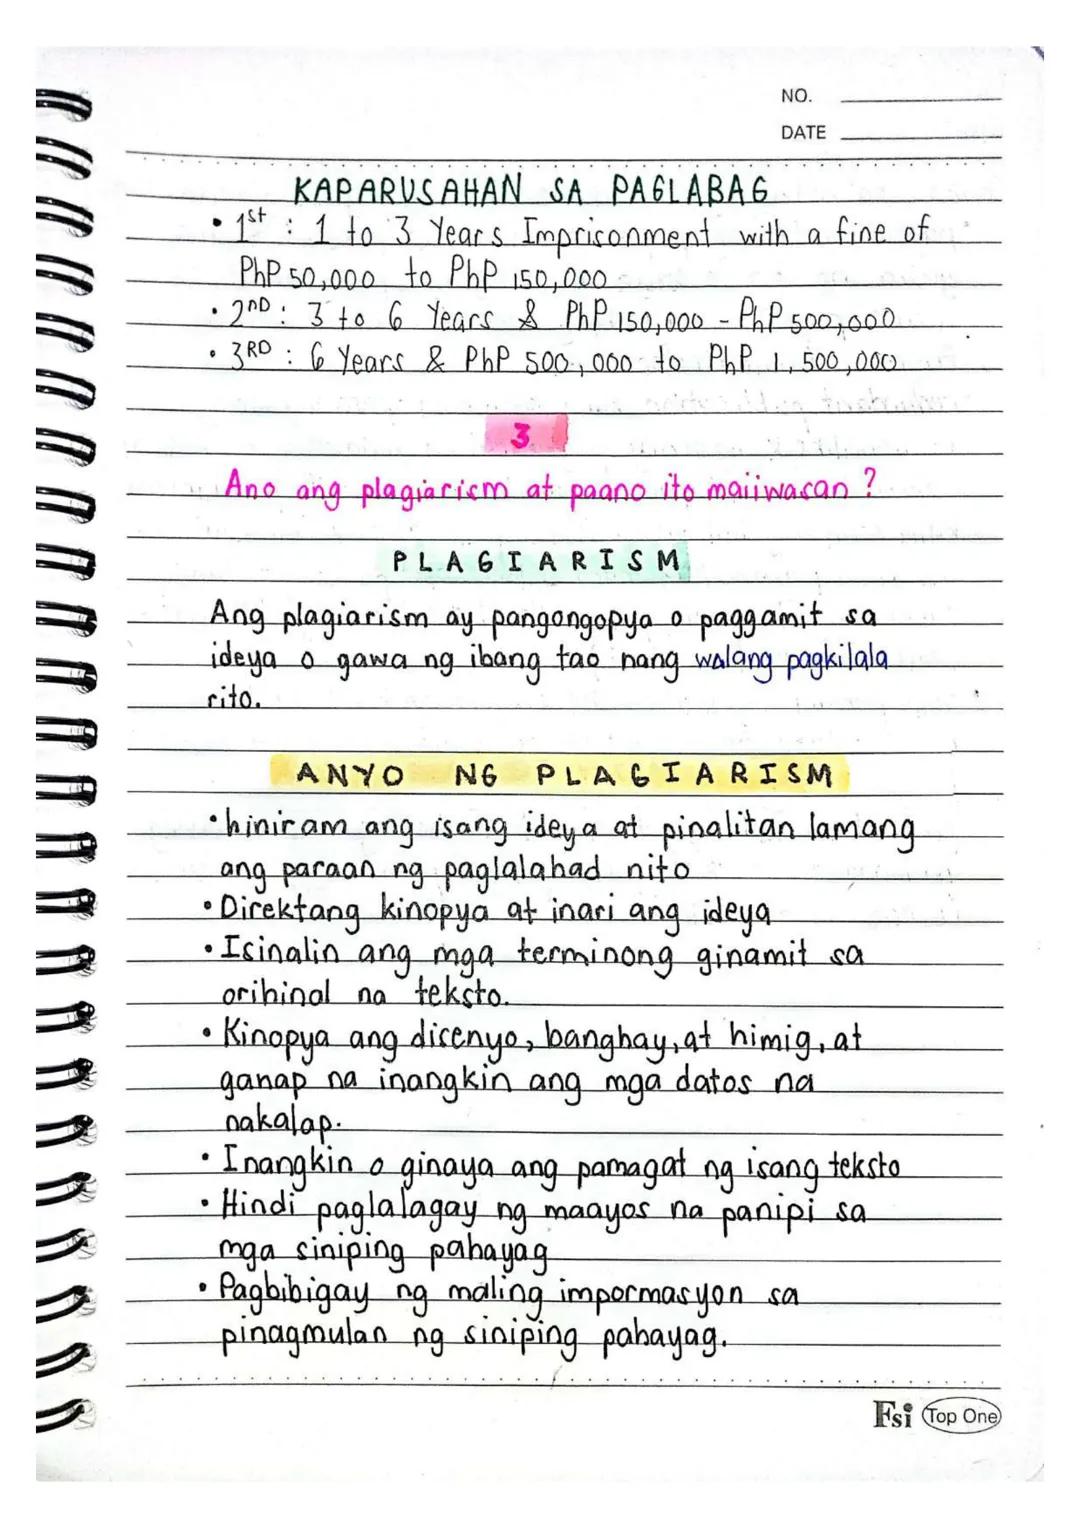 NO.
DATE
KAPARUSAHAN SA PAGLABAG
• 1st : 1 to 3 Years Imprisonment with a fine of
PhP 50,000 to PhP 150,000
• 2ND : 3 to 6 Years & PhP 150,000 - PhP 500,000
• 3RD : 6 Years & PhP 500,000 to PhP 1,500,000
3
Ano ang plagiarism at paano ito maiiwasan ?
PLAGIARISM
Ang plagiarism ay pangongopya o paggamit sa
ideya o gawa ng ibang tao nang walang pagkilala
rito.
ANYO NG PLAGIARISM
• hiniram ang isang ideya at pinalitan lamang
ang paraan ng paglalahad nito
• Direktang kinopya at inari ang ideya
• Isinalin ang mga terminong ginamit sa
orihinal na teksto.
• Kinopya ang disenyo, banghay, at himig, at
ganap na inangkin ang mga datos na
nakalap.
• Inangkin o ginaya ang pamagat ng isang teksto
• Hindi paglalagay ng maayos na panipi sa
mga siniping pahayag
• Pagbibigay ng maling impormasyon sa
pinagmulan ng siniping pahayag.
Fsi Top One